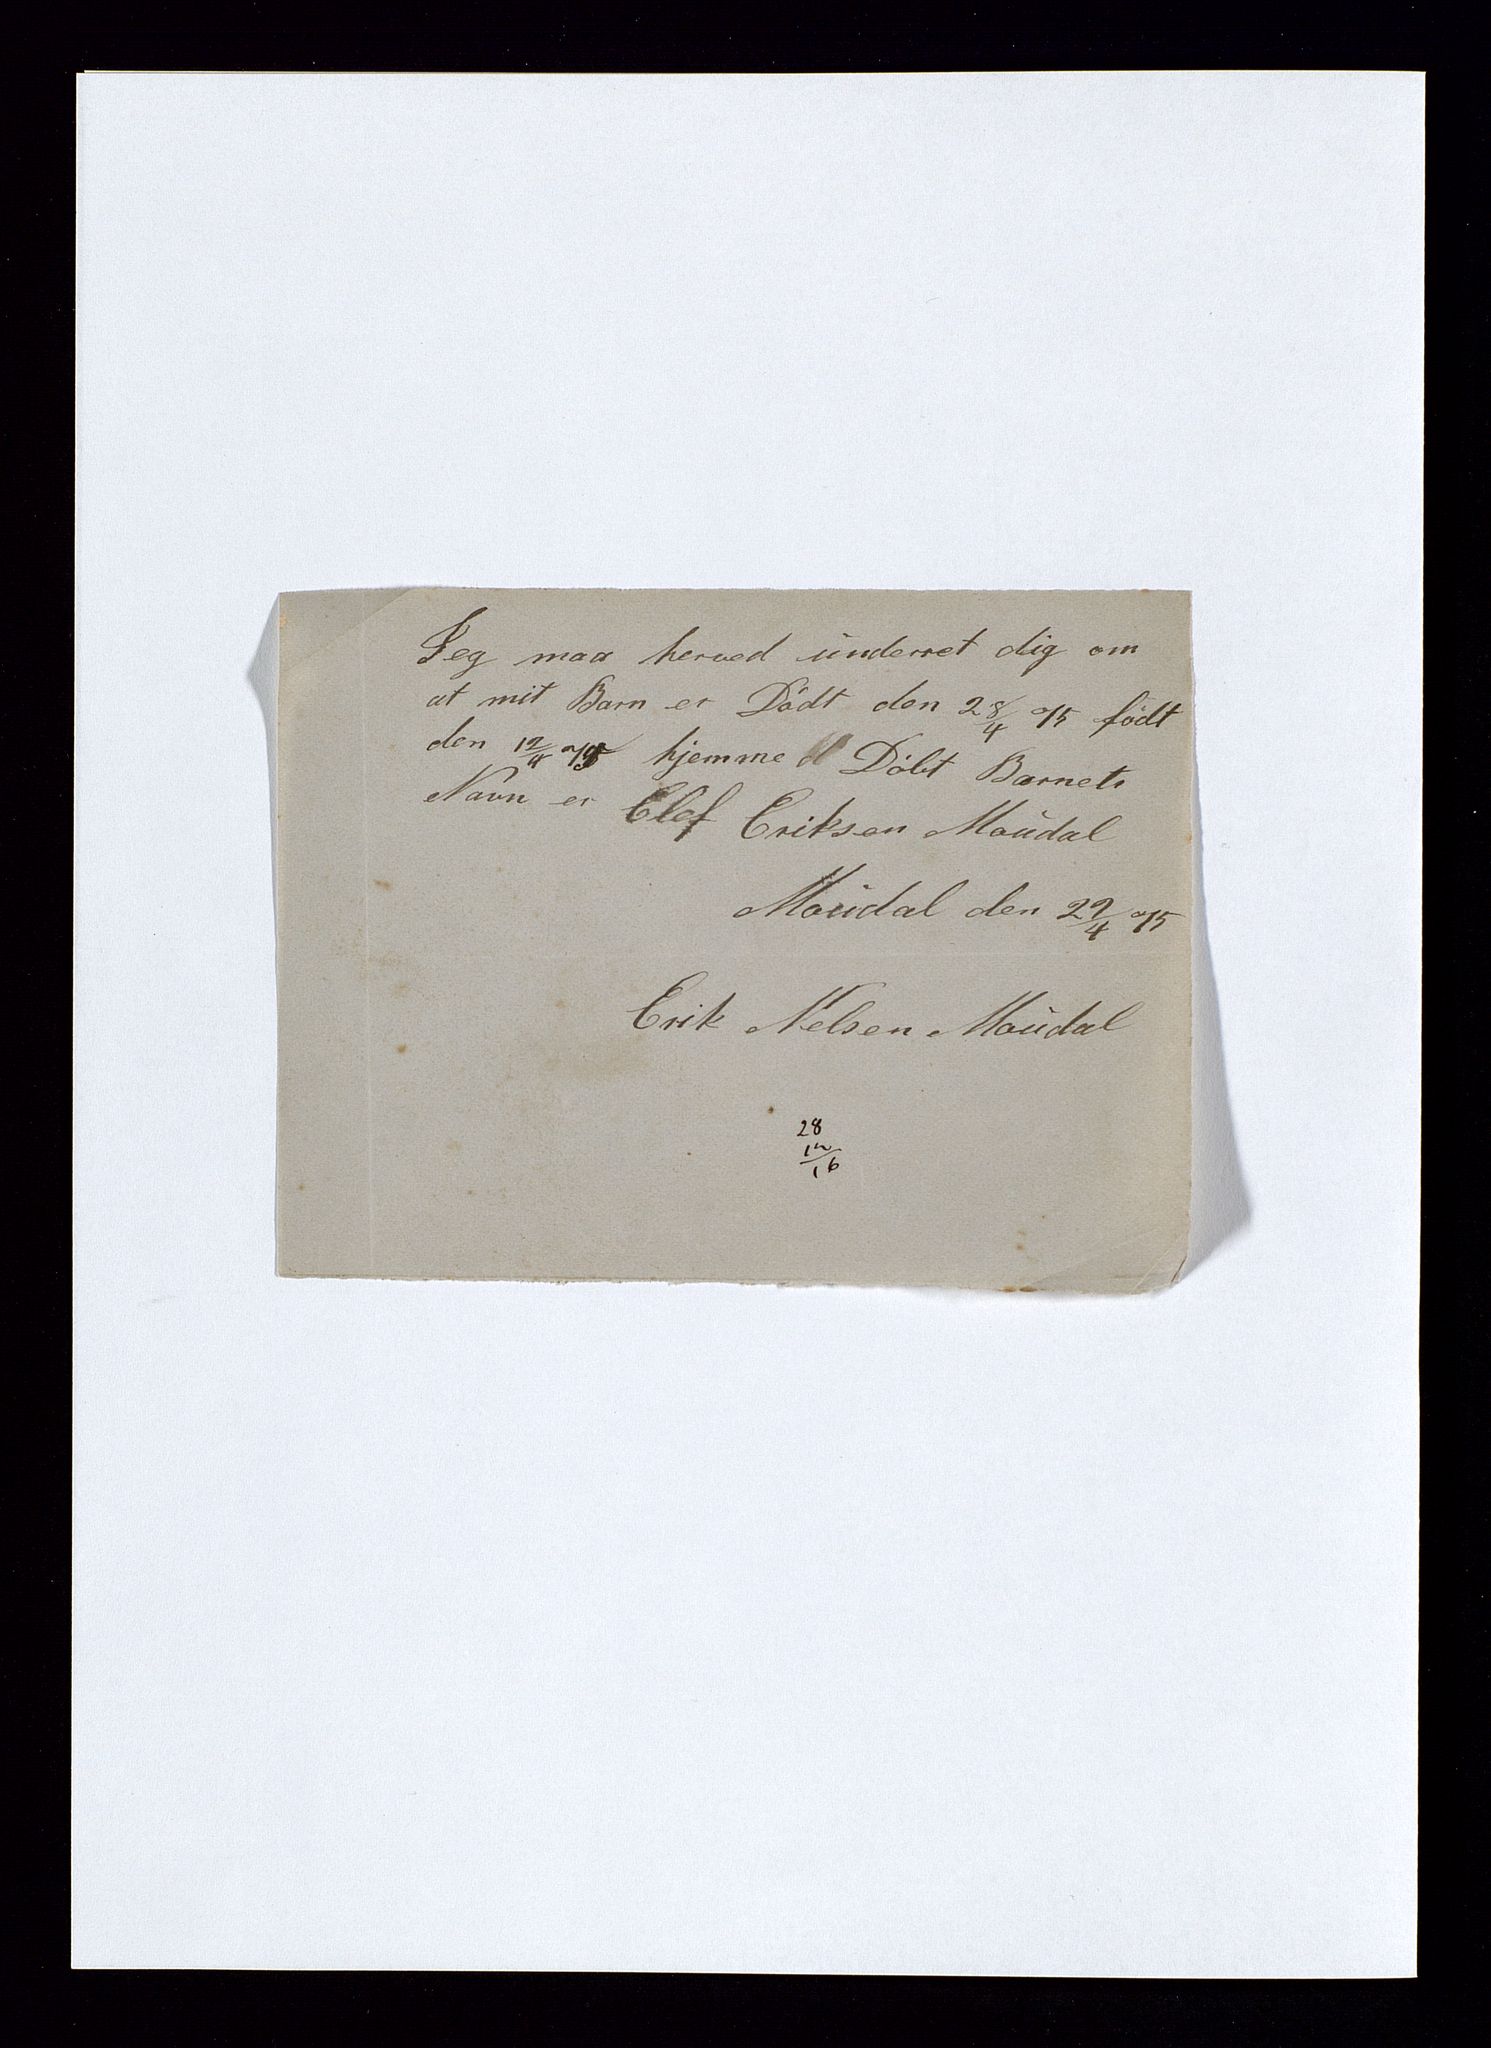 Jeg maa herved ünderret dig om
at mit Barn er Dödt den 28/4 75 födt
den 12/4 75 hjemme Döbt Barnets
Navn er Elef Eriksen Moüdal
Moüdal den 29/4 75
Erik Nelsen Moüdal
28
12
16